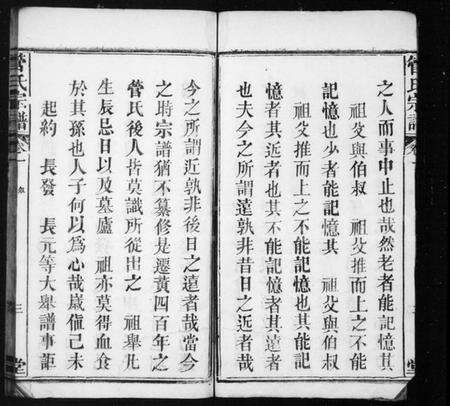 管氏宗譜
卷一
之人而事中止也哉然老者能記憶其
祖父與伯叔 祖父推而上之不能
記憶也少者能記憶其 祖父與伯叔
祖父推而上之不能記憶也其能記
憶者其近者也其不能記憶者其遠者
也夫今之所謂遠孰非昔日之近者哉
今之所謂近孰非後日之遠者哉當今
之時宗譜猶不纂修是遷黃四百年之
管氏後人皆莫識所從出之 祖舉凡
生辰忌日以及墓廬 祖亦莫得血食
於其孫也人子何以為心哉歲僱己未
起約 長發 長元等大舉譜事詎
管氏宗譜
卷一
三
堂
堂